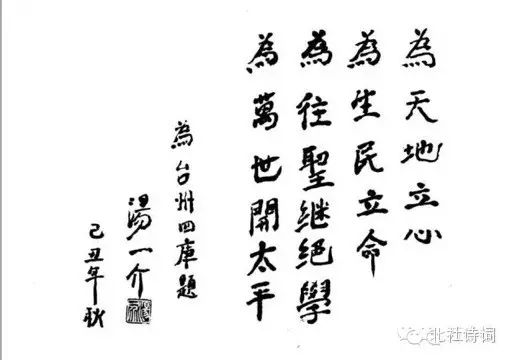 為天地立心
為生民立命
為往聖継絕學
為萬世開太平
為台州四庫題
湯一介
己丑年秋
北社诗词